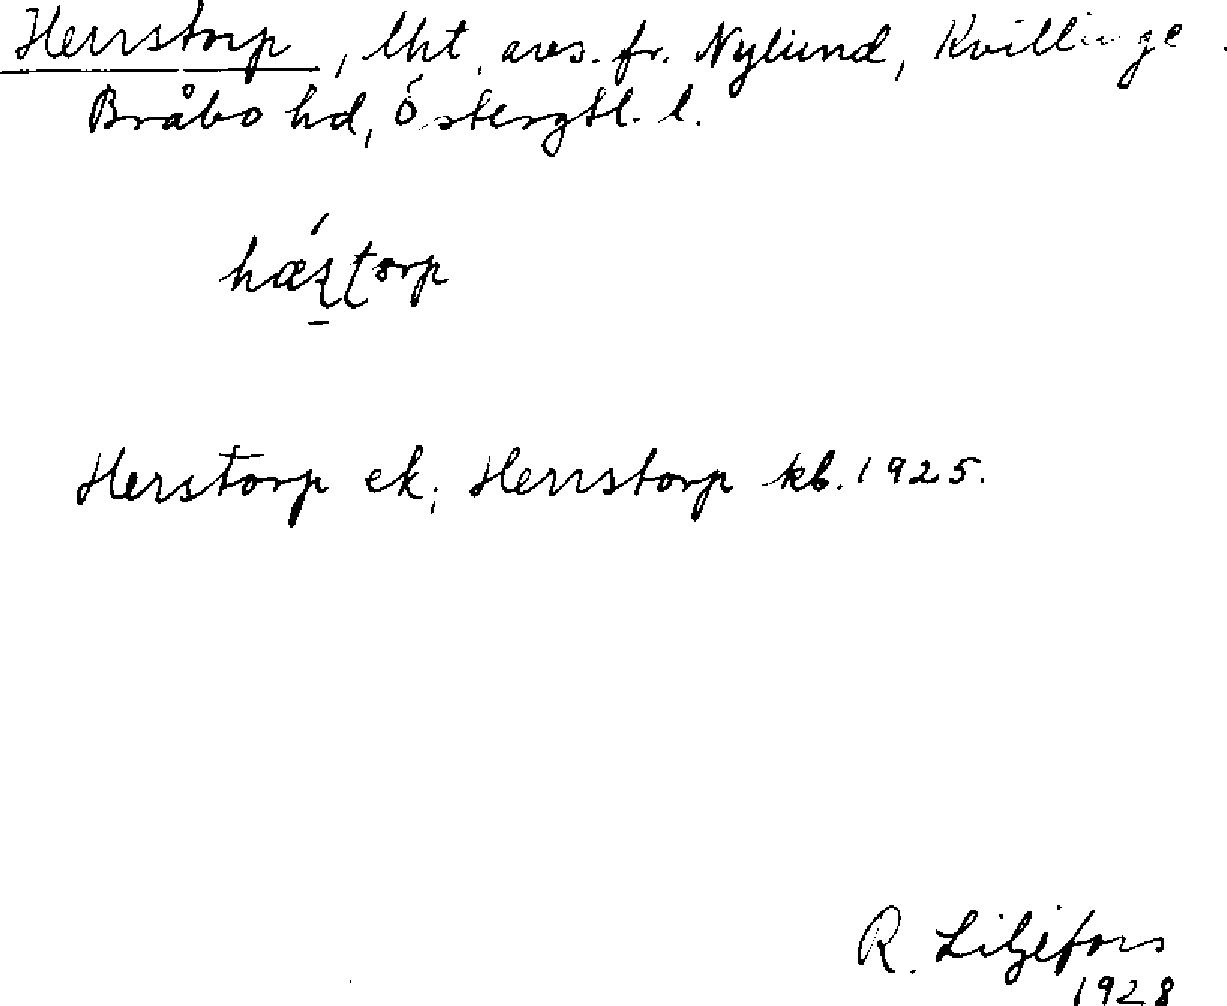 Herrstorp, lht. avs. fr. Nylund, Kvillinge.
Bråbo hd, Östergtl. l.
hæʂʈorp
Herstorp ek; Herrstorp kb. 1925.
R. Liljefors
1928